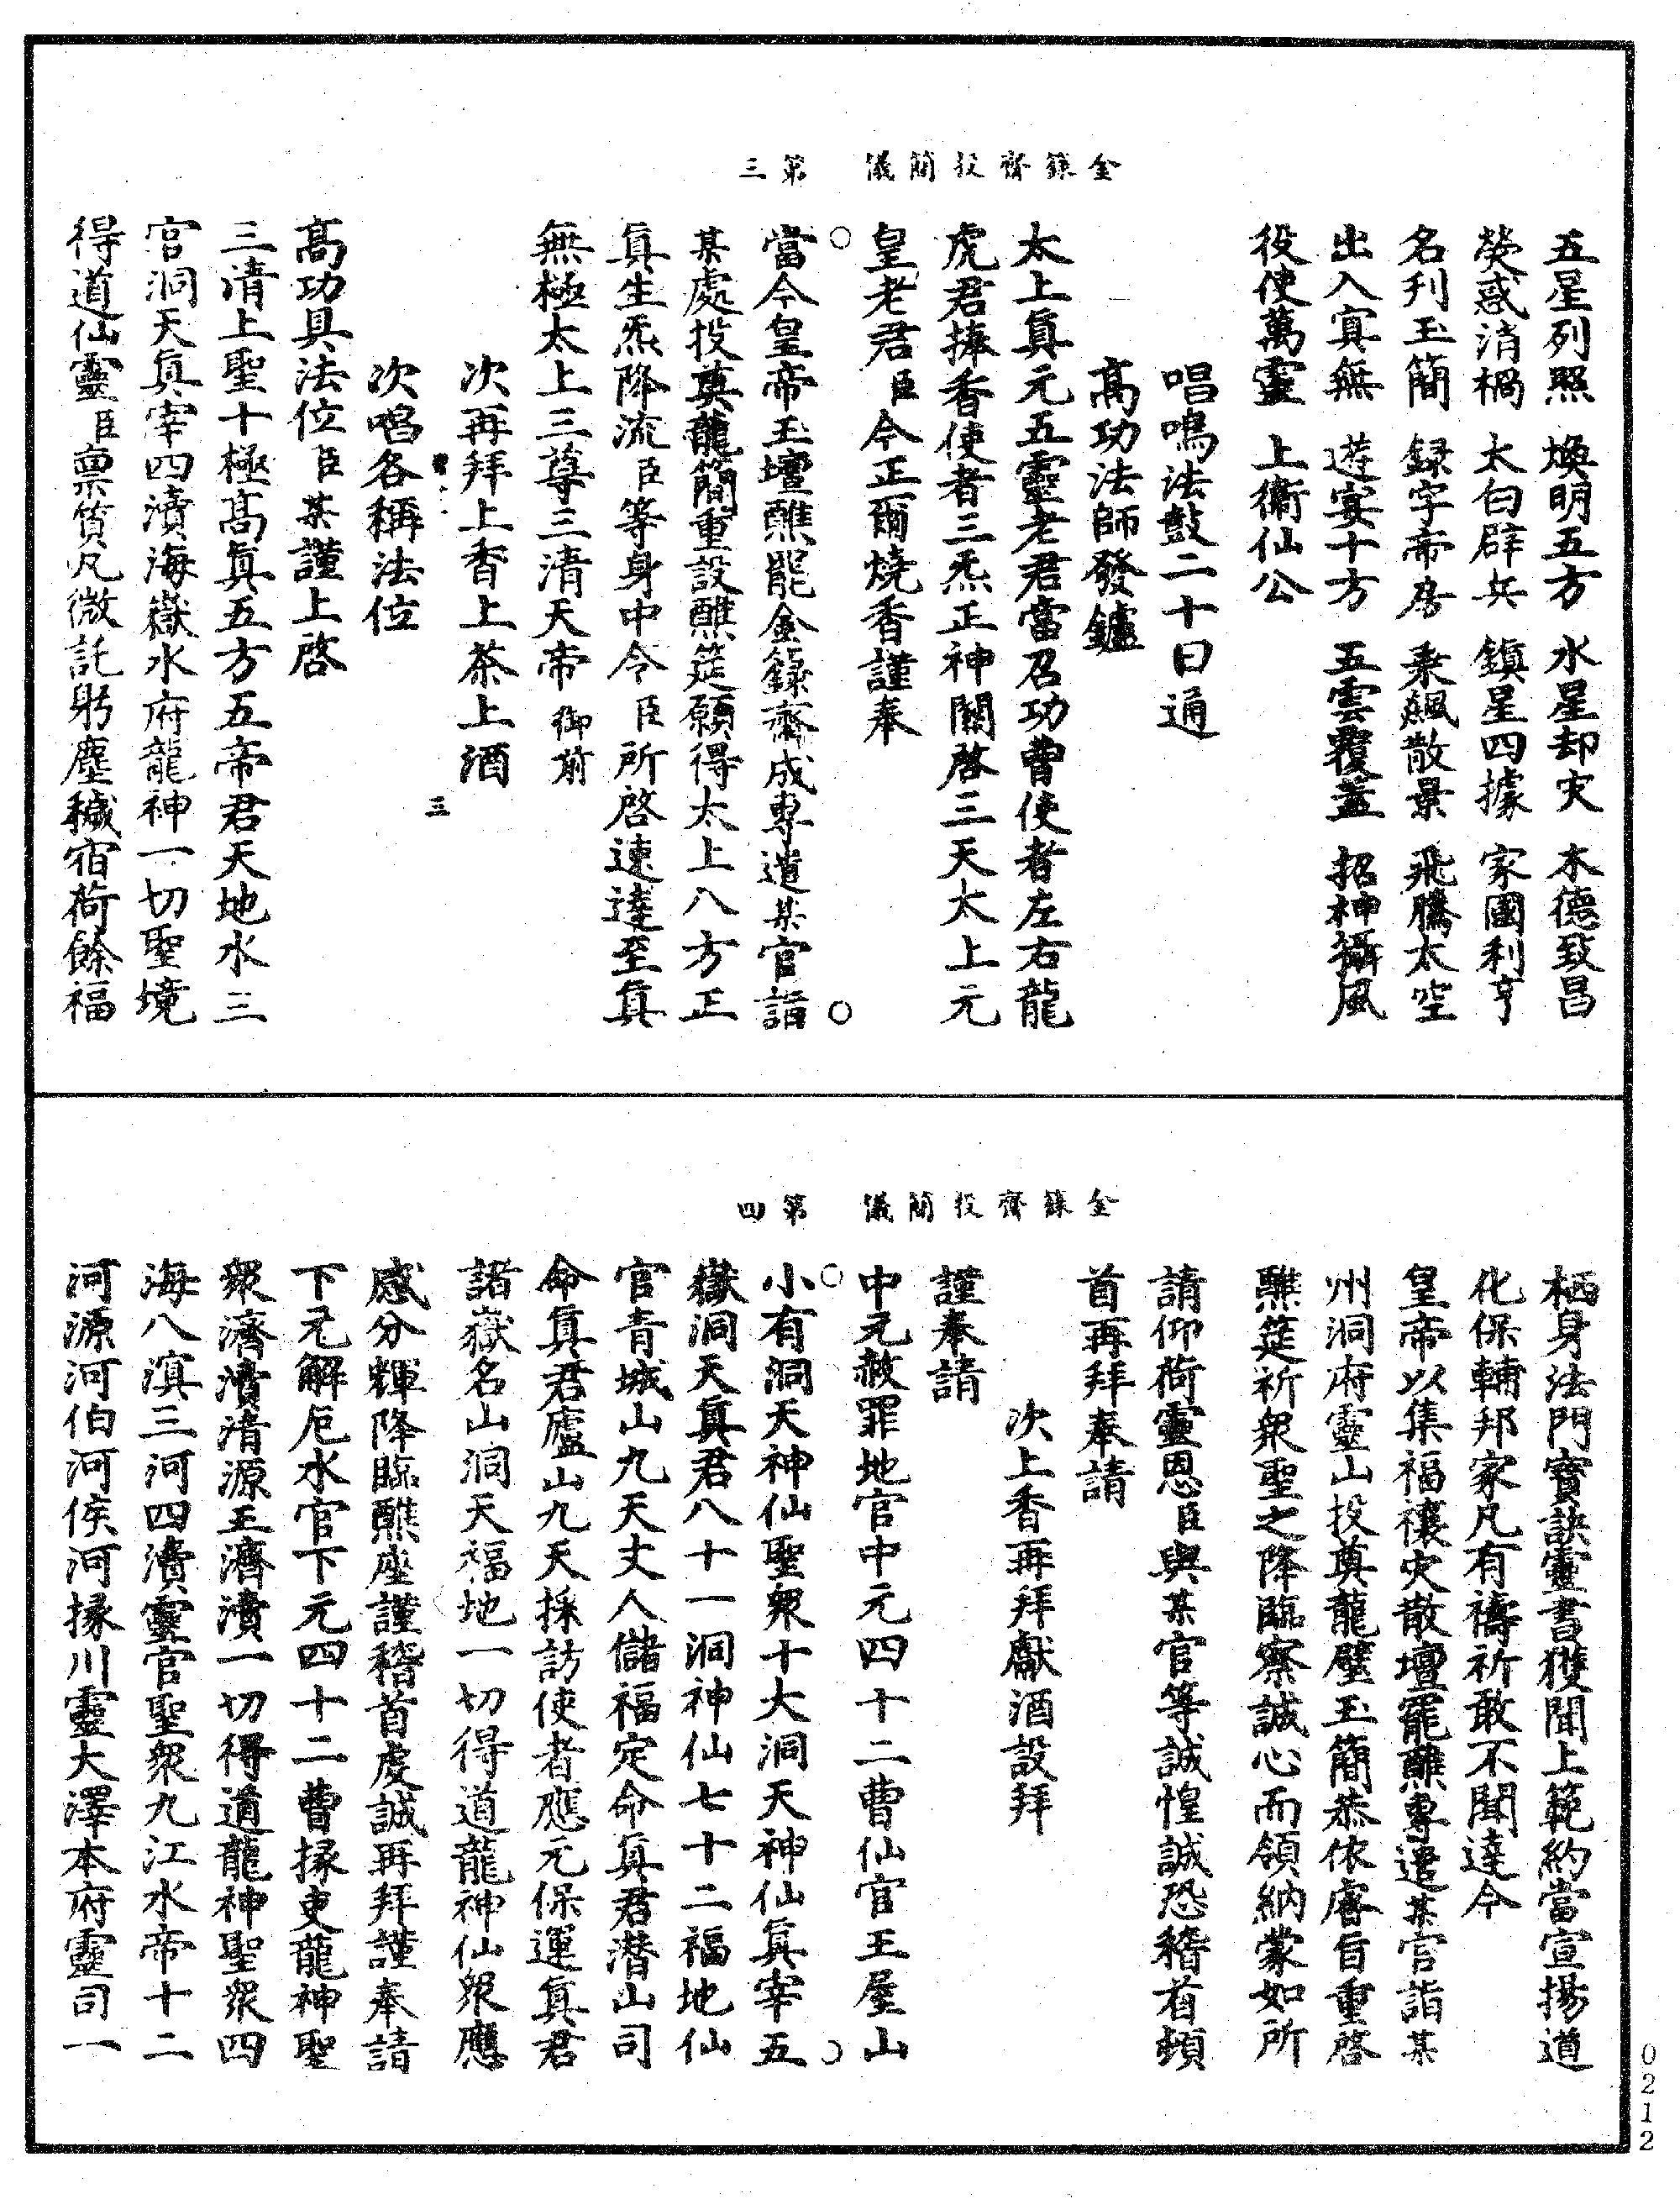 金籙齋投簡儀　第三
五星列照　煥明五方　水星却灾　木德致昌
熒惑消禍　太白辟兵　鎮星四據　家國利亨
名刋玉簡　録字帝房　乘飈散景　飛騰太空
出入㝠無　遊宴十方　五雲覆蓋　招神攝風
役使萬靈　上衛仙公
唱鳴法鼓二十四通
高功法師發鑪
太上眞元五靈老君當召功曹使者左右龍
虎君捧香使者三炁正神關啓三天太上元
皇老君臣今正爾燒香謹奉
當今皇帝玉壇醮罷金籙齋成專遣某官詣
某處投奠龍簡重設醮筵願得太上八方正
眞生炁降流臣等身中令臣所啓速達至眞
無極太上三尊三清天帝御前
次再拜上香上茶上酒
三
次唱各稱法位
高功具法位臣某謹上啓
三清上聖十極高眞五方五帝君天地水三
官洞天眞宰四瀆海嶽水府龍神一切聖境
得道仙靈臣禀質凡微託躬塵穢宿荷餘福
金籙齋投簡儀　第四
栖身法門寶訣靈書獲聞上範約當宣揚道
化保輔邦家凡有禱祈敢不聞達今
皇帝以集福禳灾散壇罷醮專遣某官詣某
州洞府靈山投奠龍璧玉簡恭依睿旨重啓
醮筵祈衆聖之降臨察誠心而領納蒙如所
請仰荷靈恩臣與某官等誠惶誠恐稽首頓
首再拜奉請
次上香再拜獻酒設拜
謹奉請
中元赦罪地官中元四十二曹仙官王屋山
小有洞天神仙聖衆十大洞天神仙眞宰五
嶽洞天眞君八十一洞神仙七十二福地仙
官青城山九天丈人儲福定命眞君潜山司
命眞君廬山九天採訪使者應元保運眞君
諸嶽名山洞天福地一切得道龍神仙衆應
感分輝降臨醮座謹稽首虔誠再拜謹奉請
下元解厄水官下元四十二曹掾吏龍神聖
衆濟瀆清源王濟瀆一切得道龍神聖衆四
海八溟三河四瀆靈官聖衆九江水帝十二
河源河伯河侯河掾川靈大澤本府靈司一
0212